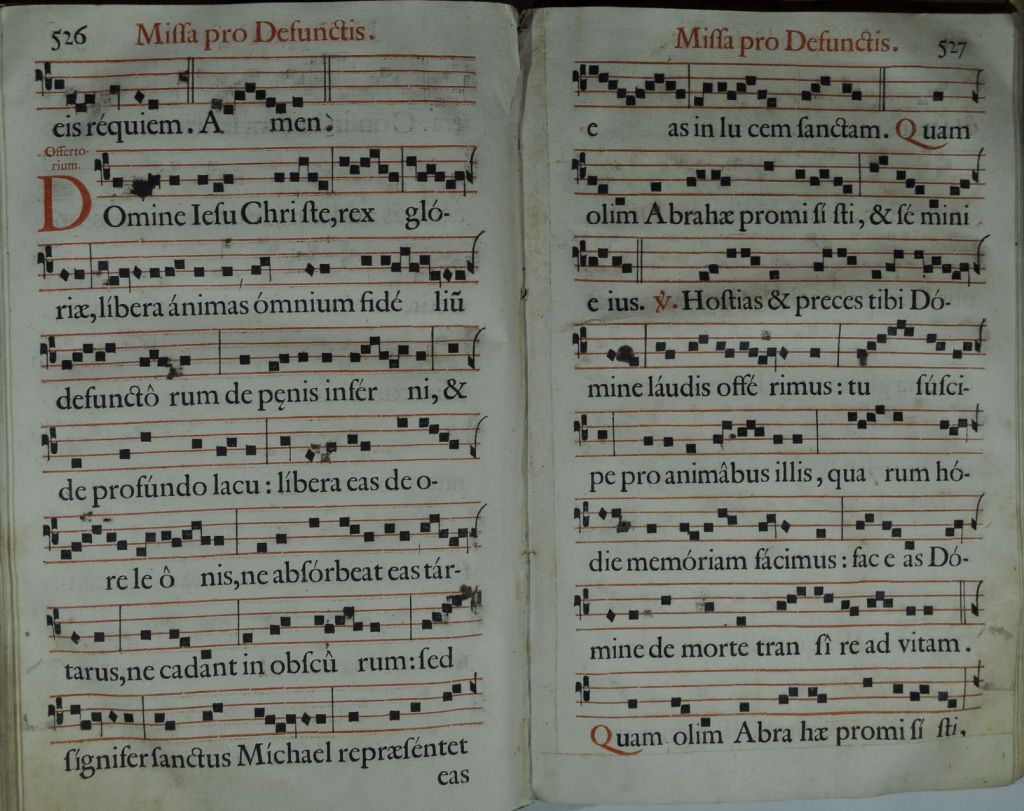 526 Miſſa pro Defunctis.
eis réquiem. A men.
Offerto-
rium.
DOmine Ieſu Chri ſte, rex gló-
riæ, líbera ánimas ómnium fidé liũ
defunctô rum de pęnis infér ni, &
de profúndo lacu: líbera eas de o-
re le ô nis, ne abſórbeat eas tár-
tarus, ne cadant in obſcû rum: ſed
ſígnifer ſanctus Míchael repræſéntet
eas
Miſſa pro Defunctis. 527
e as in lu cem ſanctam. Quam
olim Abrahæ promi ſi ſti, & ſé mini
e ius. ℣. Hoſtias & preces tibi Dó-
mine láudis offé rimus: tu ſúſci-
pe pro animâbus illis, qua rum hó-
die memóriam fácimus: fac e as Dó-
mine de morte tran ſî re ad vitam.
Quam olim Abra hæ promi ſi ſti,